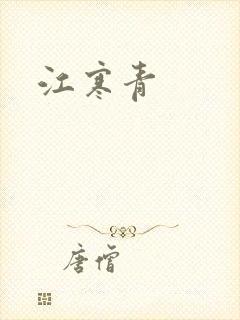 江寒青
唐僧